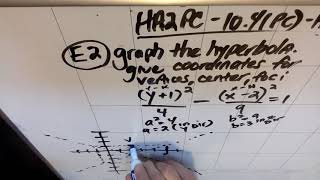 HA2PC - 10.4(PC) -
E2) graph the hyperbola.
give coordinates for
vertices, center, foci
(y+1)² - (x-2)² = 1
4 9
a²=4 b²=9
a=2 (in y dir) b=3 in